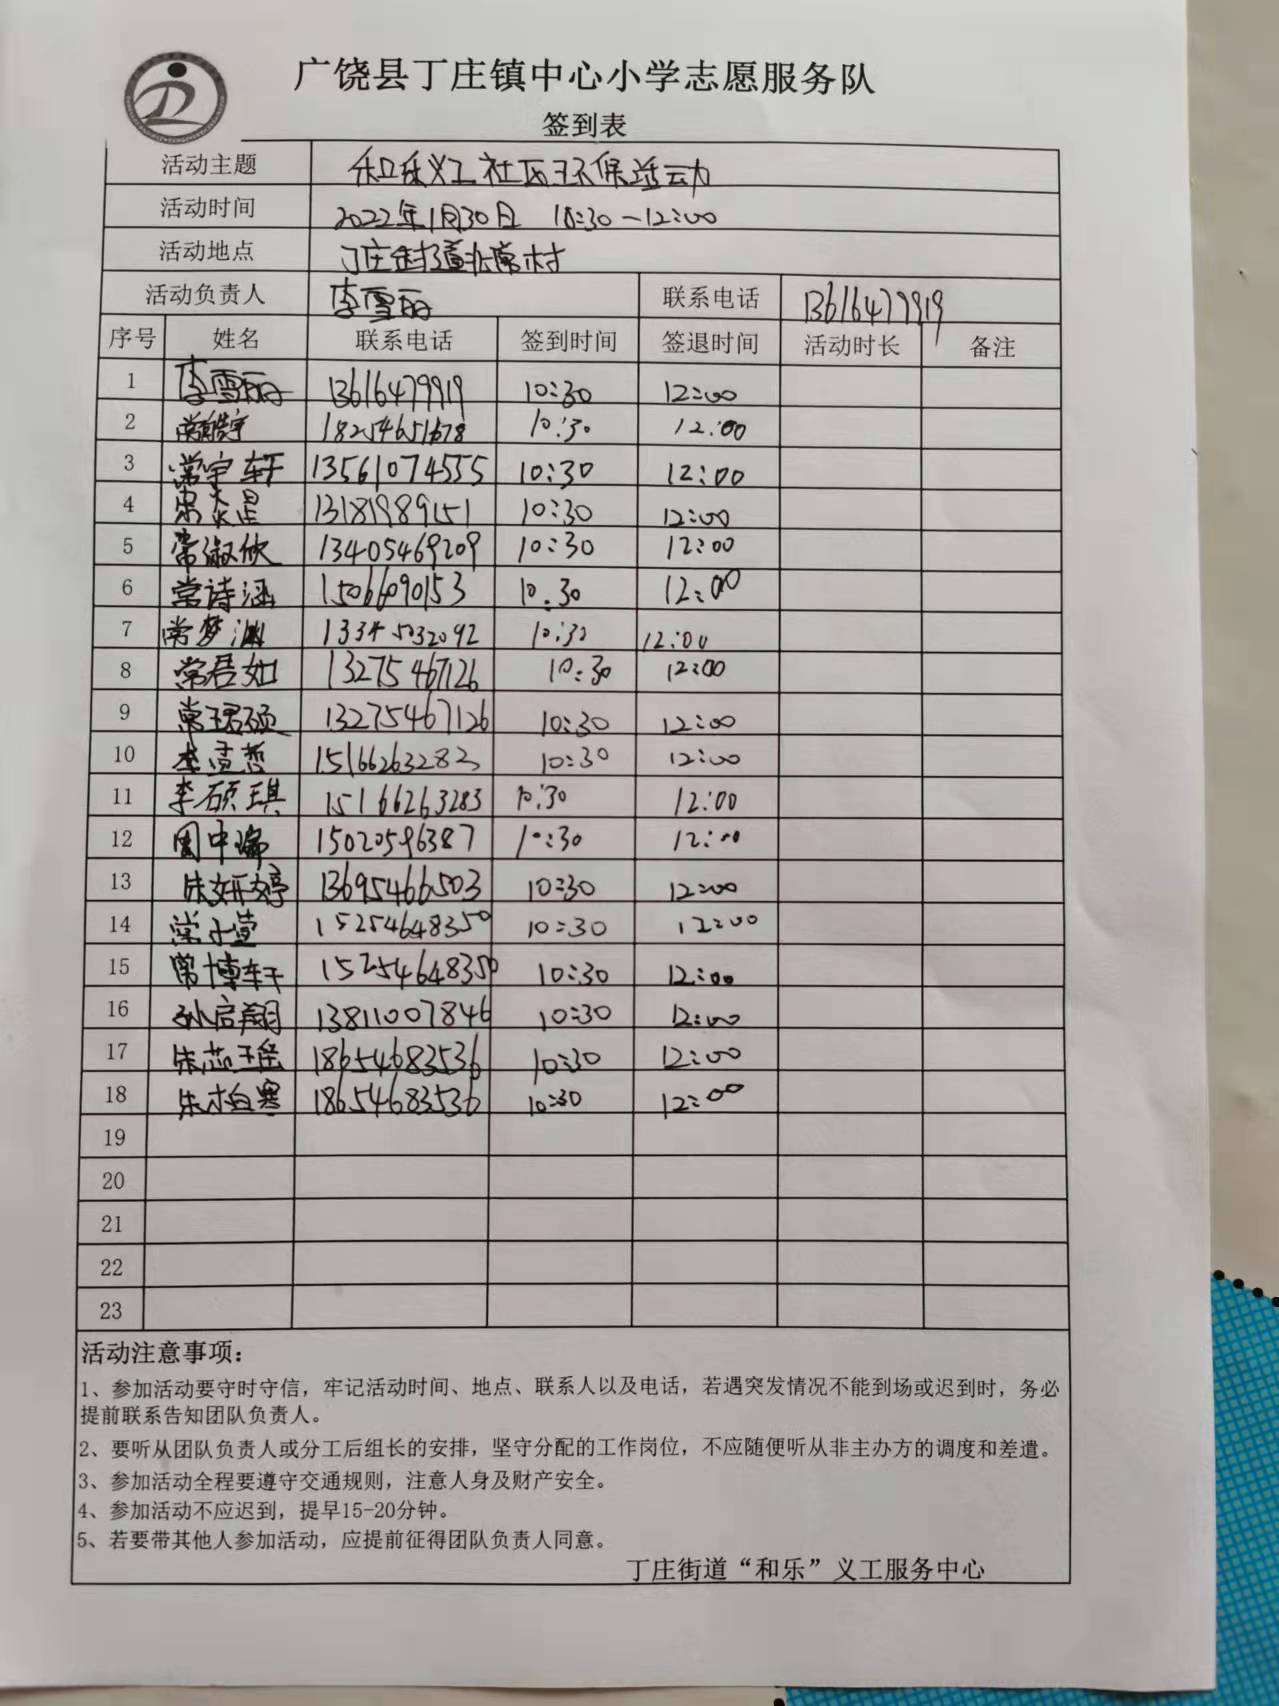 广饶县丁庄镇中心小学志愿服务队
签到表
活动主题 和乐义工社区环保活动
活动时间 2022年1月30日 10:30—12:00
活动地点 丁庄街道北常村
活动负责人 李雪丽 联系电话 13616479919
序号 姓名 联系电话 签到时间 签退时间 活动时长 备注
1 李雪丽 13616479919 10:30 12:00
2 18254651678 10:30 12:00
3 常宇轩 13561074555 10:30 12:00
4 13181989151 10:30 12:00
5 常淑欣 13405469209 10:30 12:00
6 常诗涵 1506690153 10:30 12:00
7 常梦 13345032092 10:30 12:00
8 常君如 13275467126 10:30 12:00
9 常珺硕 13275467126 10:30 12:00
10 李壹哲 15166263283 10:30 12:00
11 李硕琪 15166263283 10:30 12:00
12 周中瑞 15020596387 10:30 12:00
13 朱妍婷 13695466503 10:30 12:00
14 常子萱 15254648350 10:30 12:00
15 常博轩 15254648350 10:30 12:00
16 孙启翔 13811007846 10:30 12:00
17 朱芯瑶 18654683536 10:30 12:00
18 朱柏寒 18654683536 10:30 12:00
19
20
21
22
23
活动注意事项：
1、参加活动要守时守信，牢记活动时间、地点、联系人以及电话，若遇突发情况不能到场或迟到时，务必
提前联系告知团队负责人。
2、要听从团队负责人或分工后组长的安排，坚守分配的工作岗位，不应随便听从非主办方的调度和差遣。
3、参加活动全程要遵守交通规则，注意人身及财产安全。
4、参加活动不应迟到，提早15-20分钟。
5、若要带其他人参加活动，应提前征得团队负责人同意。
丁庄街道“和乐”义工服务中心